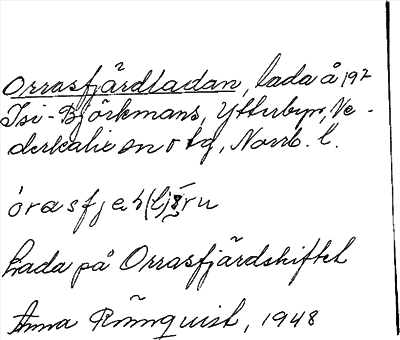 Orrasfjärdladan, lada å 192
Isi-Björkmans, Ytterbyn, Ne-
derkalix sn o tg, Norrb. l.
Lada på Orrasfjärdshiftet
Anna Rönnquist, 1948